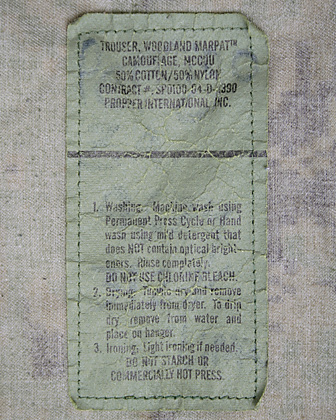 TROUSER, WOODLAND MARPAT™
CAMOUFLAGE, MCCUU
50% COTTON/50% NYLON
CONTRACT #: SPO100-04-D-4390
PROPPER INTERNATIONAL, INC.
1. Washing: Machine wash using
Permanent Press Cycle or Hand
wash using mild detergent that
does NOT contain optical bright-
eners. Rinse completely.
DO NOT USE CHLORINE BLEACH.
2. Drying: Tumble dry and remove
immediately from dryer. To drip
dry remove from water and
place on hanger.
3. Ironing: Light ironing if needed.
DO NOT STARCH OR
COMMERCIALLY HOT PRESS.